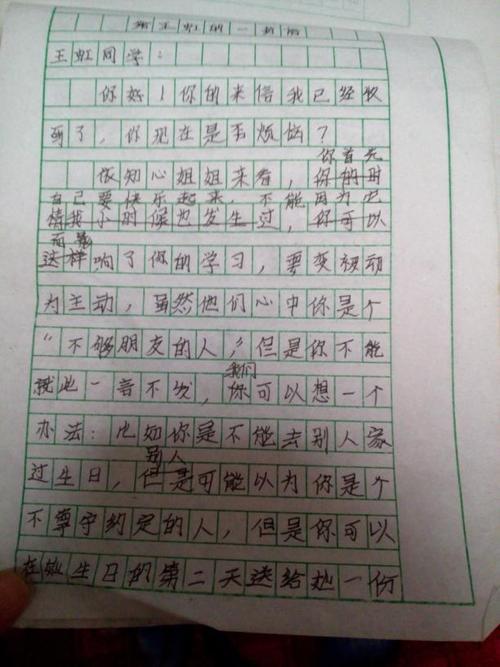 给王虹的一封信
王虹同学：
你好！你的来信我已经收
到了，你现在是否烦恼？
你首先
做知心姐姐来看，你的用
自己要快乐起来，不能因为它
情我小时候也发生过，你可以
而影
这样响了你的学习，要变被动
为主动，虽然他们心中你是个
“不够朋友的人”，但是你不能
我们
就此一言不发，你可以想一个
办法：比如你是不能去别人家
别人
过生日，但是可能以为你是个
不尊守约定的人，但是你可以
在她生日的第二天送给她一份